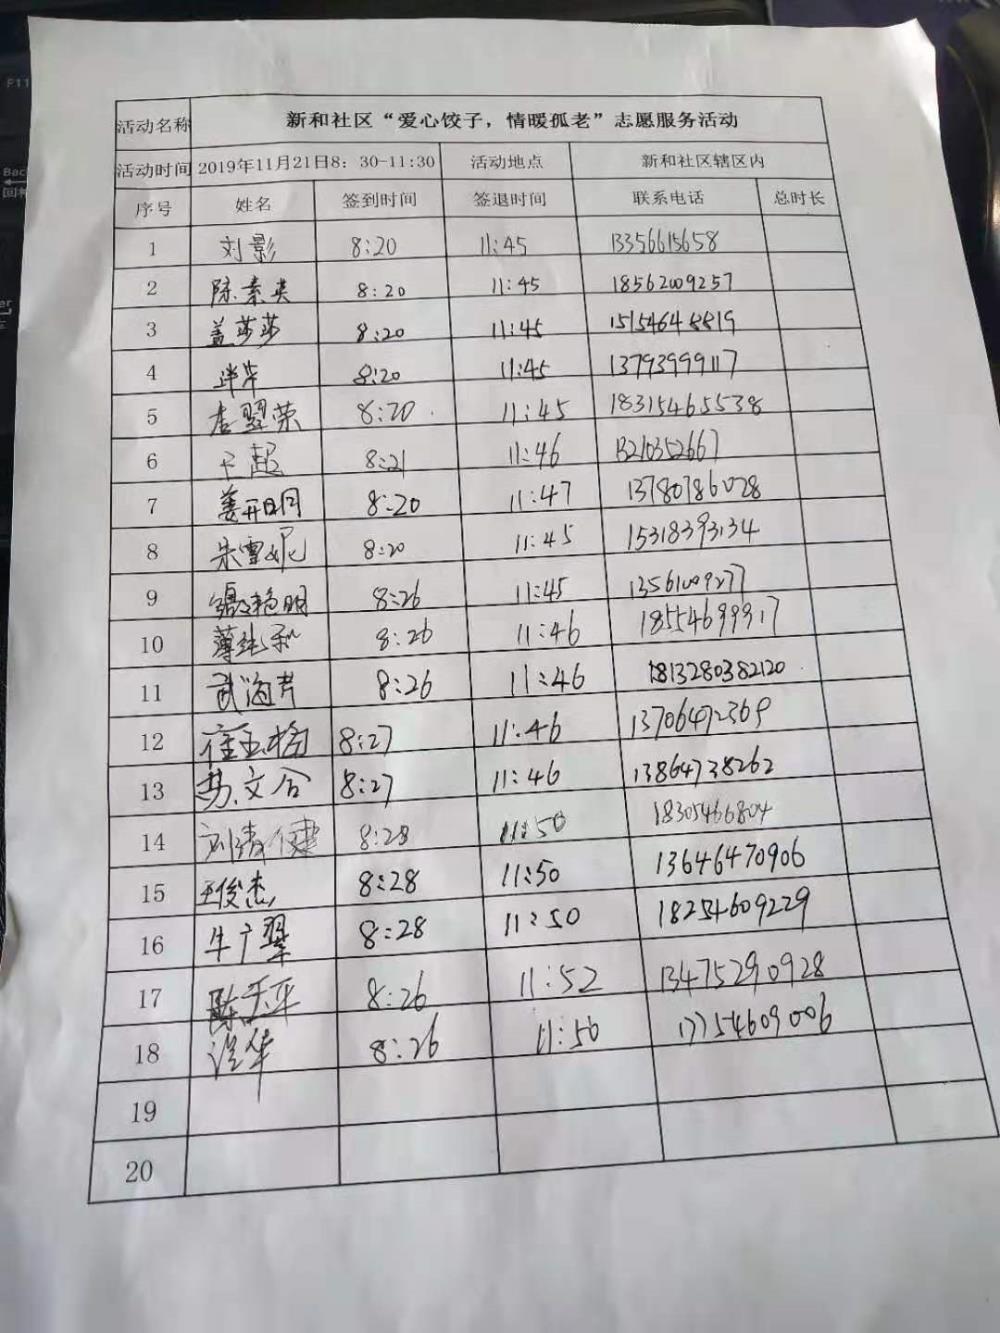 活动名称 新和社区“爱心饺子，情暖孤老”志愿服务活动
活动时间 2019年11月21日8：30-11:30 活动地点 新和社区辖区内
序号 姓名 签到时间 签退时间 联系电话 总时长
1 刘影 8:20 11:45 13356615658
2 陈素英 8:20 11:45 18562009257
3 盖莎莎 8:20 11:45 15154648819
4 8:20 11:45 13793999117
5 唐翠荣 8:20 11:45 18315465538
6 8:21 11:46 13210352667
7 姜开日同 8:20 11:47 13780786028
8 朱雪妮 8:20 11:45 15318393134
9 张艳明 8:26 11:45 13561009277
10 薄纯和 8:26 11:46 18554699917
11 武海芹 8:26 11:46 1813280382120
12 崔玉梅 8:27 11:46 13706472369
13 苏文合 8:27 11:46 13864738262
14 刘清健 8:28 11:50 18305466804
15 王俊杰 8:28 11:50 13646470906
16 牛广翠 8:28 11:50 18254609229
17 陈天平 8:26 11:52 13475290928
18 8:26 11:50 17754609006
19
20
F11